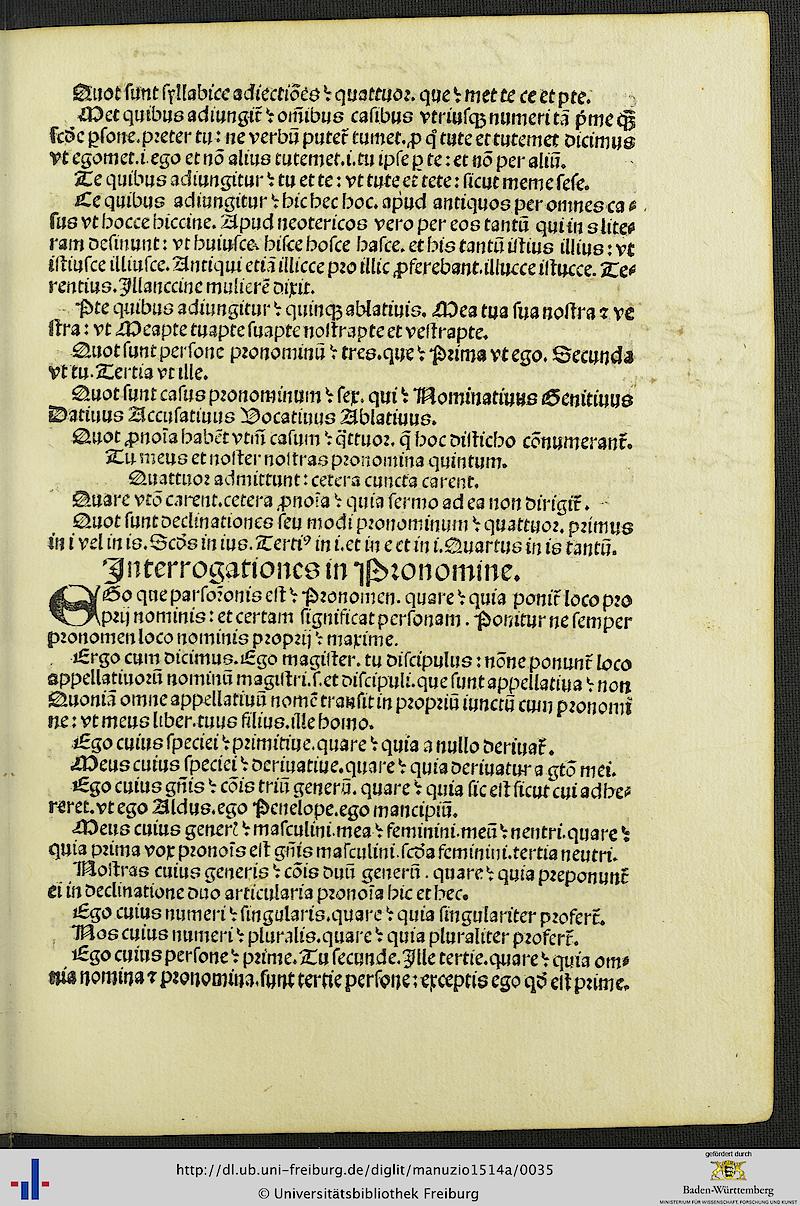 Quot sunt syllabice adiectiões ⁊ quattuor. que ⁊ met te ce et pte.
Met quibus adiungit̃ ⁊ om̃ibus casibus vtriusqꝫ numeri tã p̃me qꝫ̃
scd̃e ꝑsone. preter tu: ne verbũ putet̃ tumet. ꝓ q̃ tute et tutemet dicimus
vt egomet. i. ego et nõ alius tutemet. i. tu ipse p te: et nõ per aliũ.
Te quibus adiungitur ⁊ tu et te: vt tute et tete: sicut meme sese.
Ce quibus adiungitur ⁊ hic hec hoc. apud antiquos per omnes ca-
sus vt hocce hiccine. Apud neotericos vero per eos tantũ qui in s lite-
ram desinunt: vt huiusce. hisce hosce hasce. et his tantũ istius illius: vt
istiusce illiusce. Antiqui etiã illicce pro illic ꝓferebant. illucce istucce. Te-
rentius. Illanccine mulierẽ dixit.
Pte quibus adiungitur ⁊ quinqꝫ ablatiuis. Mea tua sua nostra ⁊ ve
stra: vt Meapte tuapte suapte nostrapte et vestrapte.
Quot sunt persone pronominũ ⁊ tres. que ⁊ Prima vt ego. Secunda
vt tu. Tertia vt ille.
Quot sunt casus pronominum ⁊ sex. qui ⁊ Nominatiuus Genitiuus
Datiuus Accusatiuus Vocatiuus Ablatiuus.
Quot ꝓnoĩa habẽt vtm̃ casum ⁊ q̃ttuor. q̃ hoc disticho cõnumerant̃.
Tu meus et noster nostras pronomina quintum.
Quattuor admittunt: cetera cuncta carent.
Quare vtõ carent. cetera ꝓnoĩa ⁊ quia sermo ad ea non dirigit̃.
Quot sunt declinationes seu modi pronominum ⁊ quattuor. primus
in i vel in is. Scd̃s in ius. Tertiꝰ in i. et in e et in i. Quartus in is tantũ.
Interrogationes in Pronomine.
EGo que pars orõnis est ⁊ Pronomen. quare ⁊ quia ponit̃ loco pro
prij nominis: et certam significat personam. Ponitur ne semper
pronomen loco nominis proprij ⁊ maxime.
Ergo cum dicimus. Ego magister. tu discipulus: nõne ponunt̃ loco
appellatiuorũ nominũ magistri. s. et discipuli. que sunt appellatiua ⁊ non
Quoniã omne appellatiuũ nomẽ transit in propriũ iunctũ cum pronomi
ne: vt meus liber. tuus filius. ille homo.
Ego cuius speciei ⁊ primitiue. quare ⁊ quia a nullo deriuat̃.
Meus cuius speciei ⁊ deriuatiue. quare ⁊ quia deriuatur a gtõ mei.
Ego cuius gñis ⁊ cõis triũ generũ. quare ⁊ quia sic est sicut cui adhe-
reret. vt ego Aldus. ego Penelope. ego mancipiũ.
Meus cuius generꝭ ⁊ masculini. mea ⁊ feminini. meũ ⁊ neutri. quare ⁊
quia prima vox pronoĩs est gñis masculini. scd̃a feminini. tertia neutri.
Nostras cuius generis ⁊ cõis duũ generũ. quare ⁊ quia preponunt̃
ei in declinatione duo articularia pronoĩa hic et hec.
Ego cuius numeri ⁊ singularis. quare ⁊ quia singulariter profert̃.
Nos cuius numeri ⁊ pluralis. quare ⁊ quia pluraliter profert̃.
Ego cuius persone ⁊ prime. Tu secunde. Ille tertie. quare ⁊ quia om-
nia nomina ⁊ pronomina. sunt tertie persone: exceptis ego qd̃ est prime.
http://dl.ub.uni-freiburg.de/diglit/manuzio1514a/0035
© Universitätsbibliothek Freiburg
gefördert durch
Baden-Württemberg
MINISTERIUM FÜR WISSENSCHAFT, FORSCHUNG UND KUNST